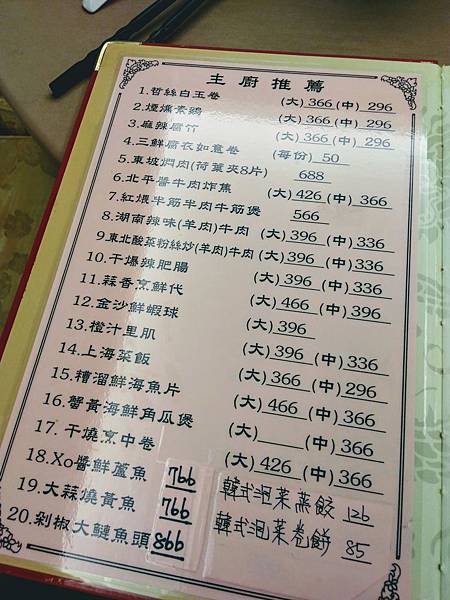 主廚推薦
1.晢絲白玉卷 (大)366(中)296
2.煙燻素鷄 (大)366(中)296
3.麻辣腐竹 (大)366(中)296
4.三鮮腐衣如意卷 (每份)50
5.東坡燜肉(荷葉夾8片) 688
6.北平醬牛肉炸焦 (大)426(中)366
7.紅煨半筋半肉牛筋煲 566
8.湖南辣味(羊肉)牛肉 (大)396(中)336
9.東北酸菜粉絲炒(羊肉)牛肉 (大)396(中)336
10.干爆辣肥腸 (大)396(中)336
11.蒜香烹鮮代 (大)466(中)396
12.金沙鮮蝦球 (大)396
13.橙汁里肌 (大)396(中)336
14.上海菜飯 (大)366(中)296
15.糟溜鮮海魚片 (大)466(中)366
16.蟹黃海鮮角瓜煲 (大) (中)366
17.干燒烹中卷 (大)426(中)366
18.Xo醬鮮鱸魚 766 韓式泡菜蒸餃 126
19.大蒜燒黃魚 766 韓式泡菜卷餅 85
20.剁椒大鰱魚頭 866